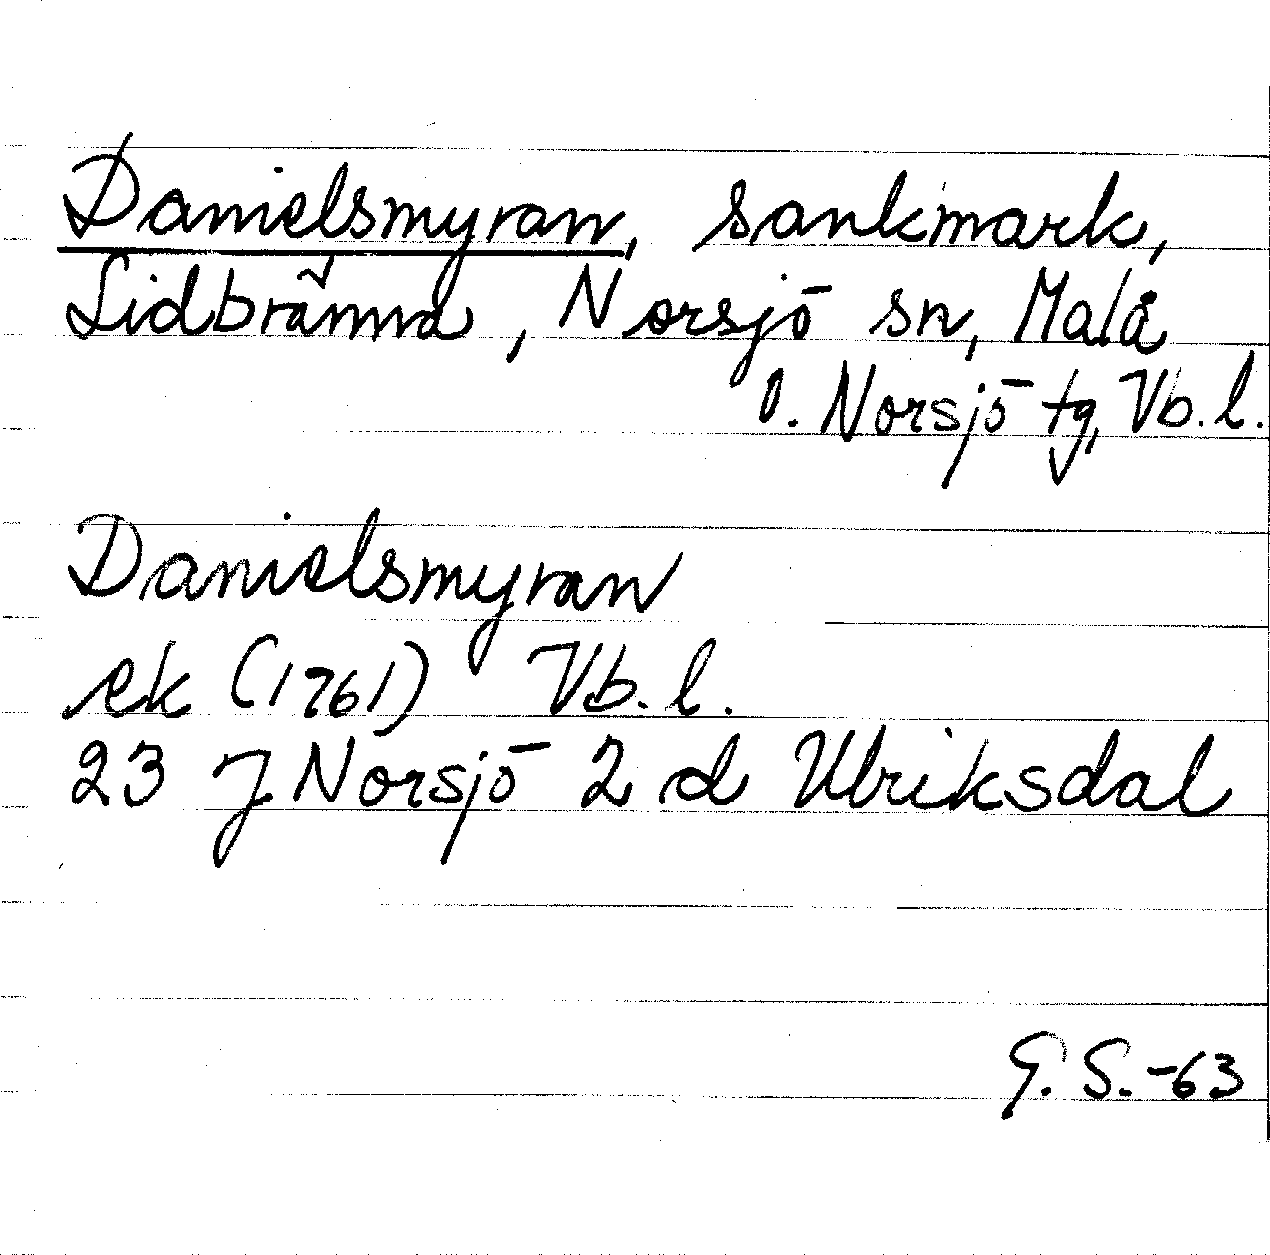 Danielsmyran, sankmark,
Lidbränna, Norsjö sn, Malå
o. Norsjö tg, Vb. l.
Danielsmyran
ek (1761) Vb. l.
23 J Norsjö 2 d Ulriksdal
G. S. -63